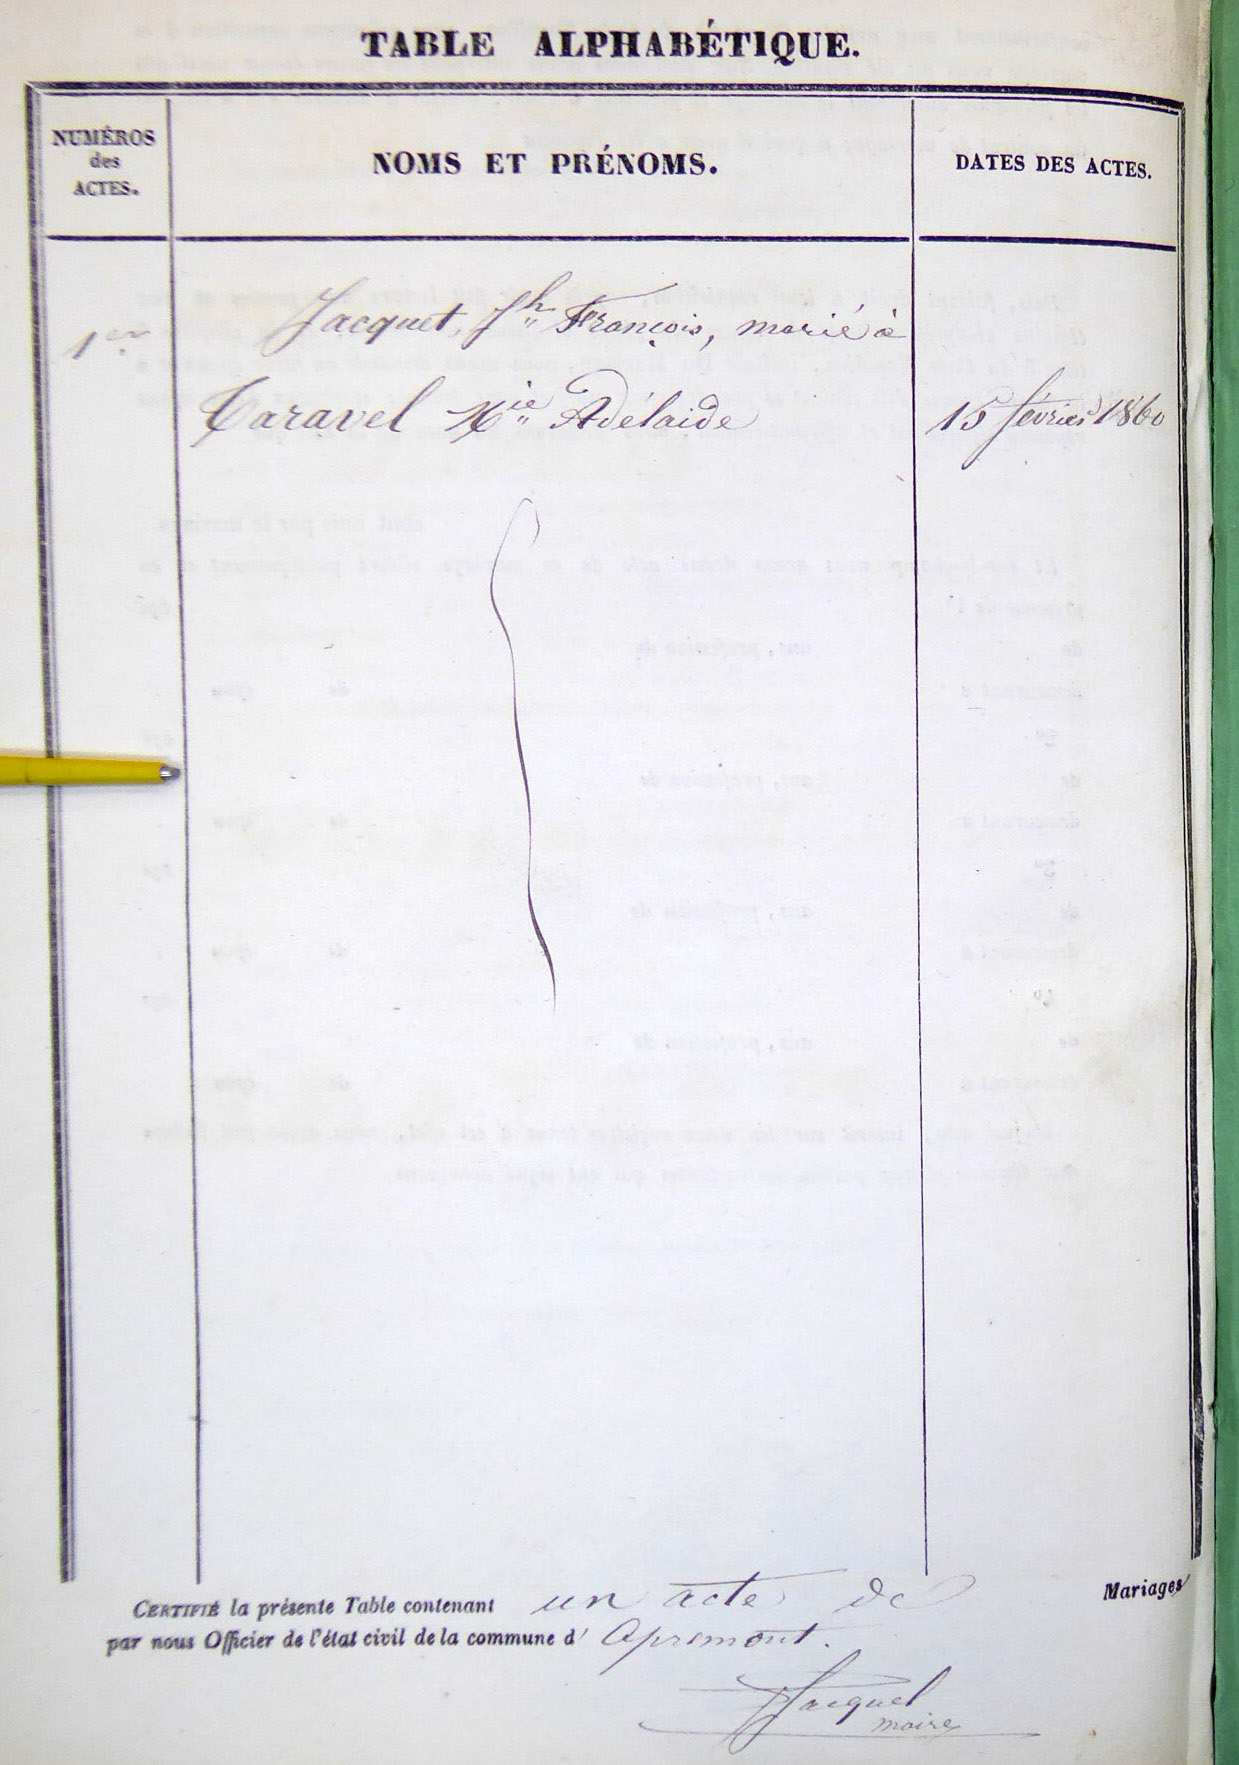 TABLE ALPHABÉTIQUE.
NUMÉROS
des
ACTES.
NOMS ET PRÉNOMS.
DATES DES ACTES.
1er Jacquet, Jh François, marié à
Caravel Mie Adélaide 15 février 1860
CERTIFIÉ la présente Table contenant un acte de Mariages
par nous Officier de l'état civil de la commune d' Apremont.
Jacquet
maire